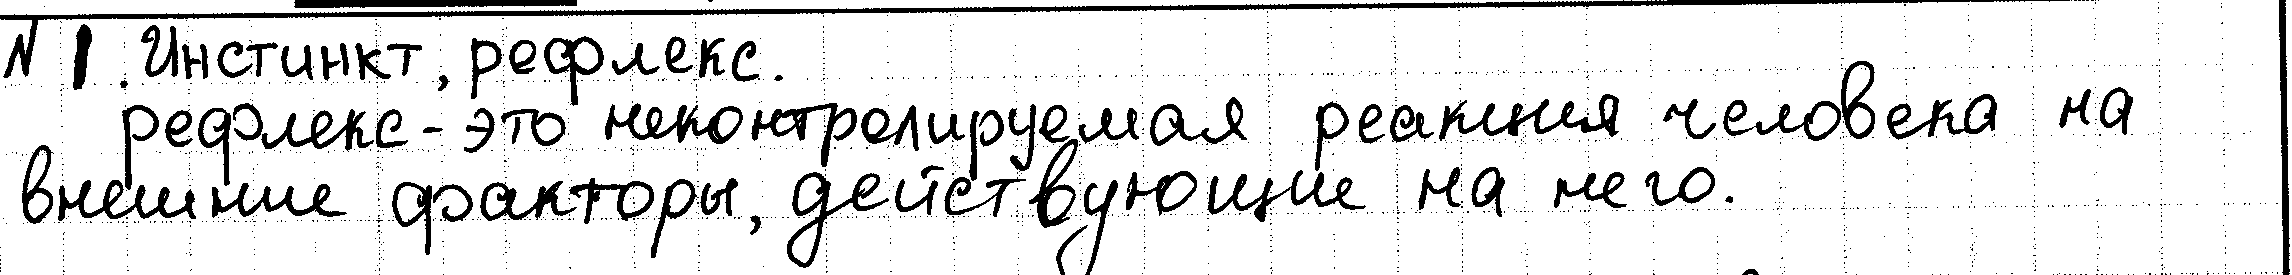 N 1. Инстинкт, рефлекс.
рефлекс - это неконтролируемая реакция человека на
внешние факторы, действующие на него.